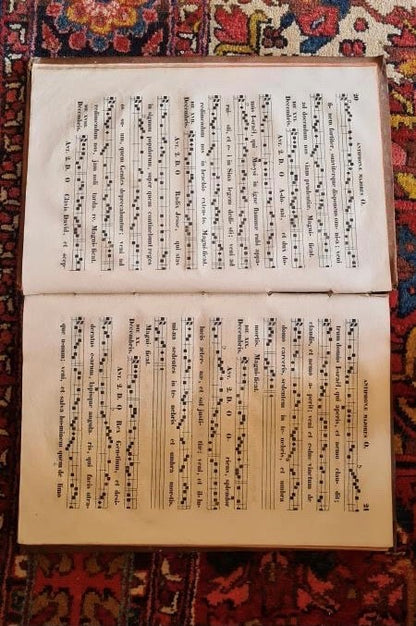 20 ANTIPHONÆ MAJORES O.
ti- nem fortiter, suaviterque disponens om- nia : veni
ad docendum nos viam prudentiæ. Magni- ficat.
DIE XVIII. Decembris. Ant. 2. D. O Ado- nai, et dux do-
mus Israel, qui Moysi in igne flammæ rubi appa-
rui- sti, et e- i in Sina legem dedi- sti : veni ad
redimendum nos in brachio exten-to. Magni-ficat.
DIE XIX. Decembris. Ant. 2. D. O Radix Jesse, qui stas
in signum populorum, super quem continebunt reges
os su- um, quem Gentes deprecabuntur : veni ad
redimendum nos, jam noli tarda- re. Magni-ficat.
Decembris. Ant. 2. D. O Clavis David, et scep-
ANTIPHONÆ MAJORES O. 21
trum domus Israel, qui aperis, et nemo clau- dit;
claudis, et nemo a- perit; veni et educ vinctum de
domo carceris, sedentem in te- nebris, et umbra
mortis. Magni- ficat.
DIE XXI. Decembris. Ant. 2. D. O O- riens, splendor
lucis æter- næ, et sol justi- tiæ : veni, et il-lu-
mi-na sedentes in te- nebris et umbra mor-tis.
Magni- ficat.
Decembris. Ant. 2. D. O Rex Gen-tium, et desi-
deratus e-arum, lapisque angula- ris, qui facis utra-
que u-num; veni, et salva ho-minem quem de limo